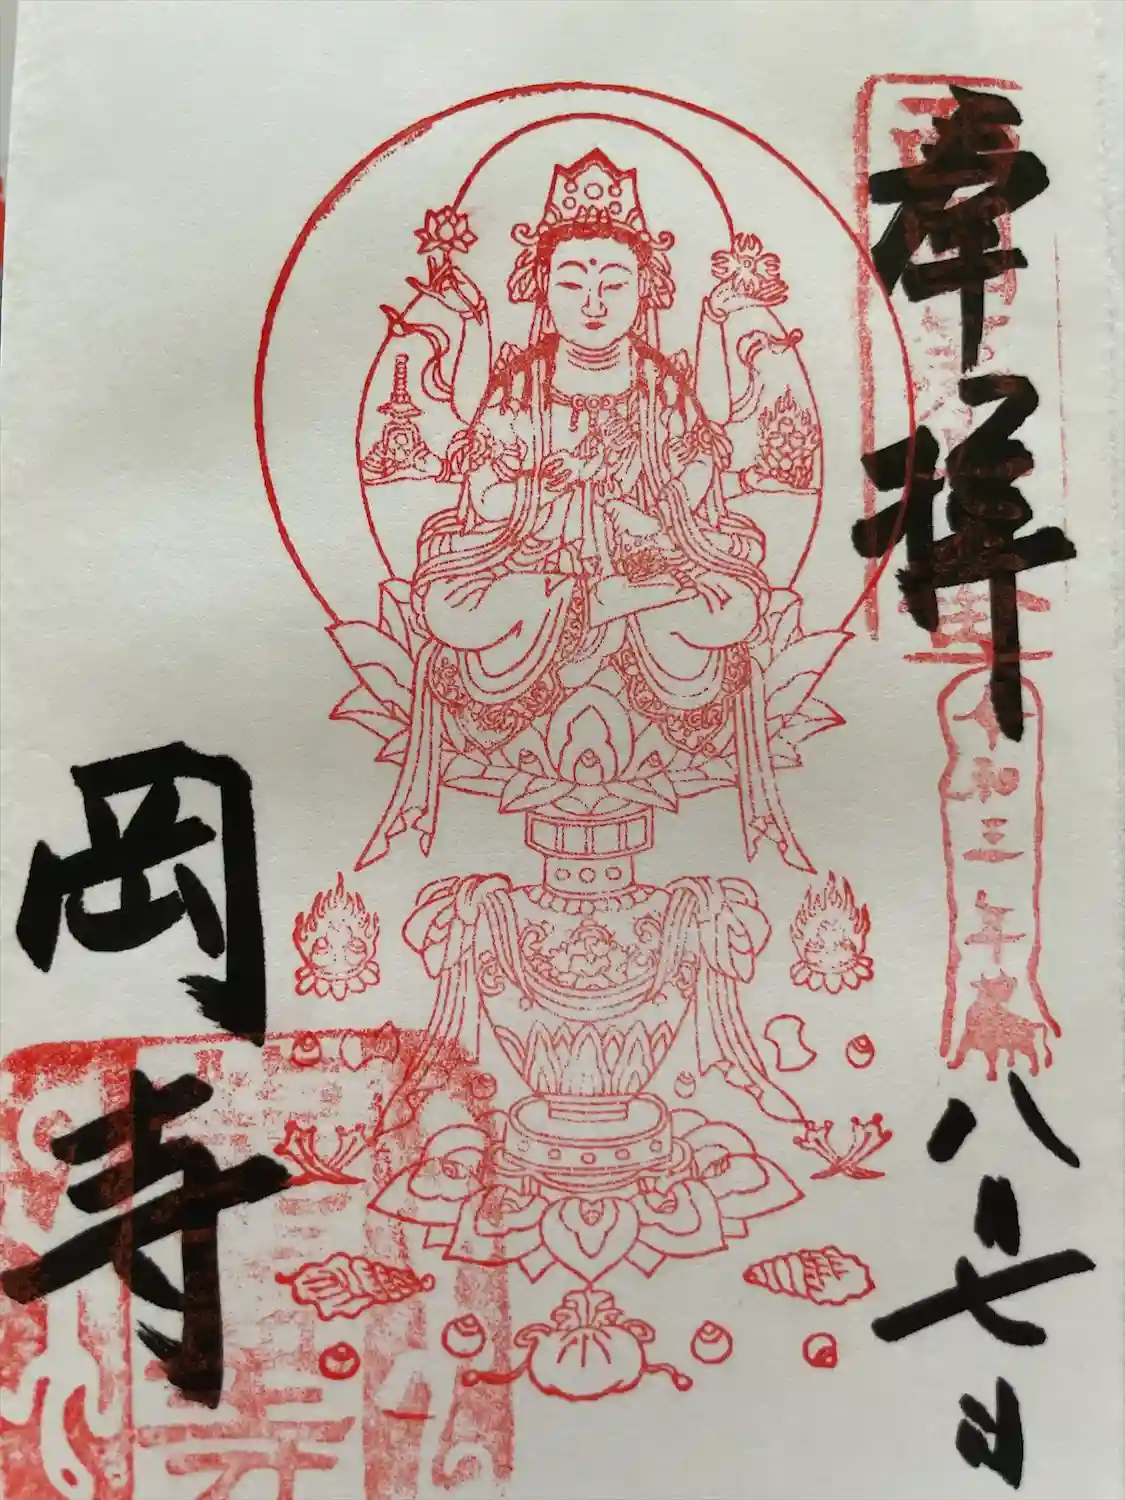 奉拝
令和三年
八月七日
岡寺